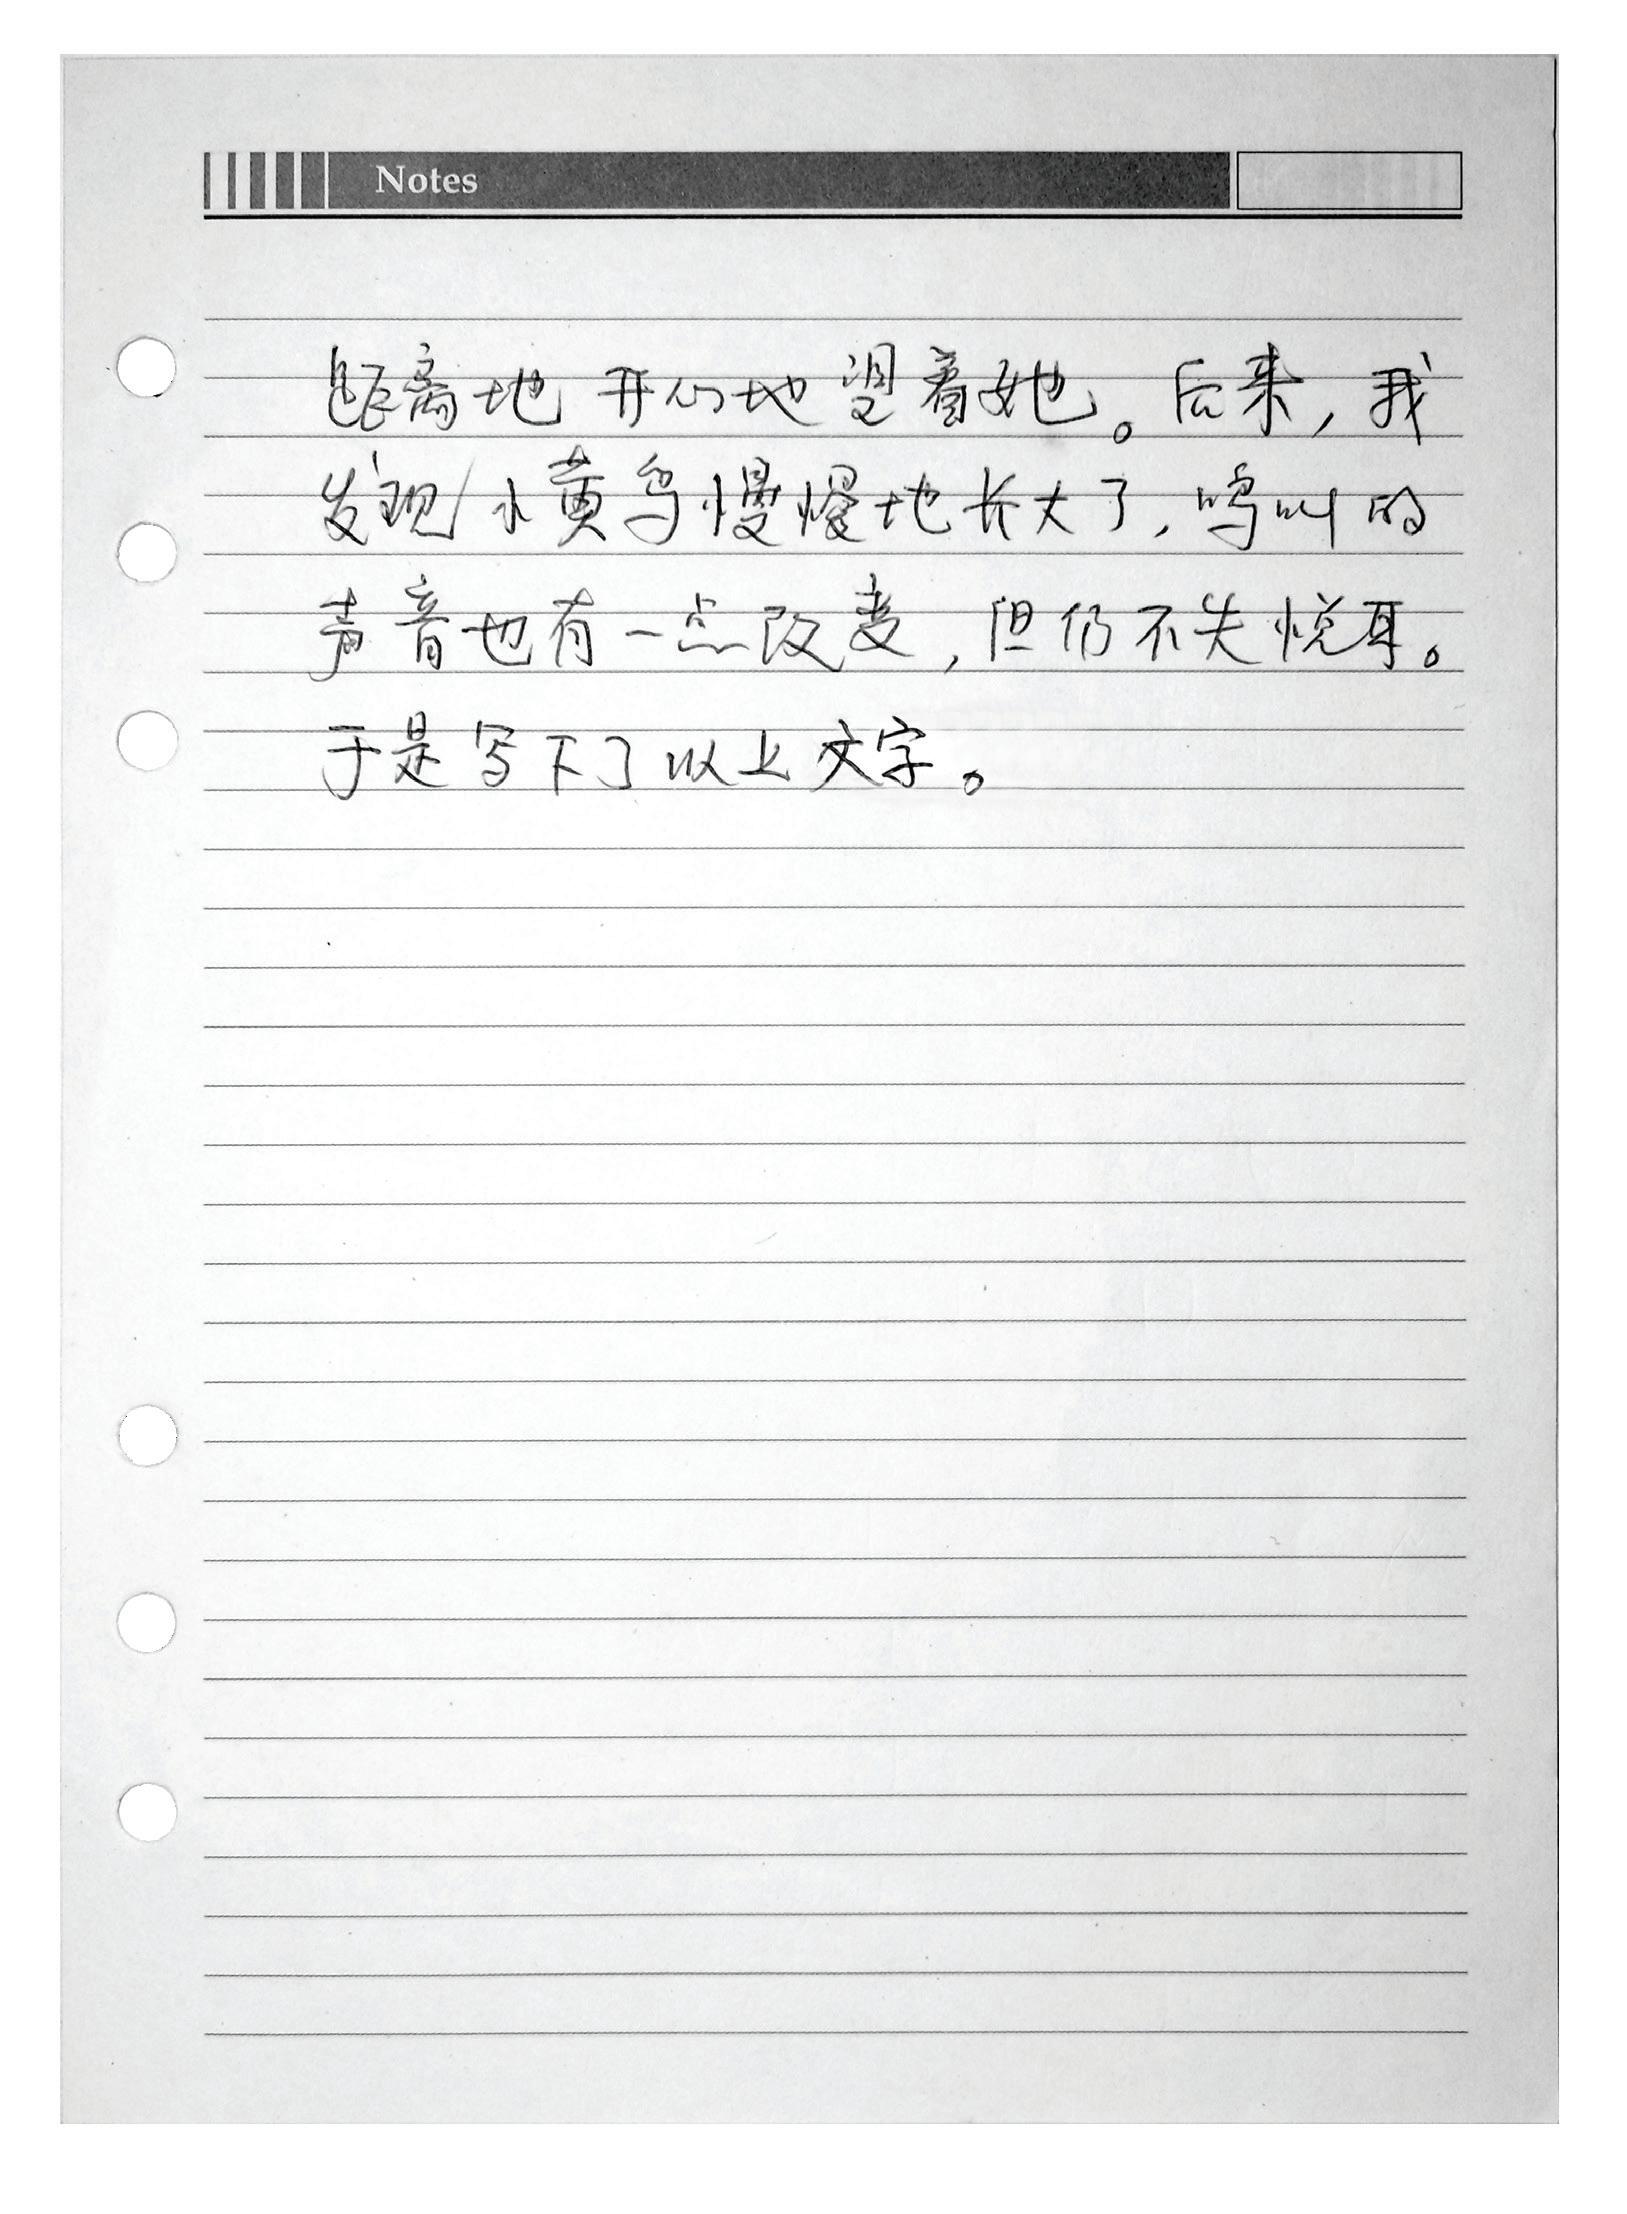 Notes
距离地开心地望着她。后来，我
发现小黄鸟慢慢地长大了，鸣叫的
声音也有一点改变，但仍不失悦耳。
于是写下了以上文字。